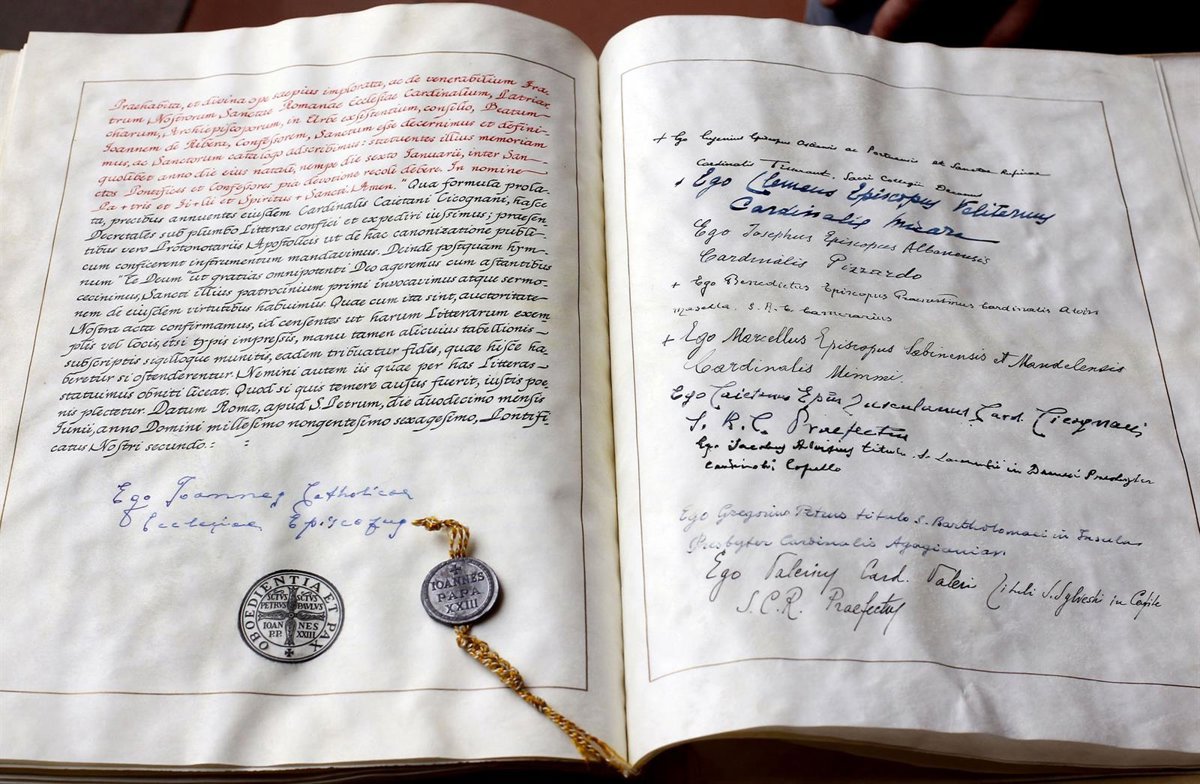 Praehabita, et divina ope saepius implorata, ac de venerabilium Fra-
trum Nostrorum Sanctae Romanae Ecclesiae Cardinalium, Patriar
charum, Archiepiscoporum, in Urbe exsistentium, consilio, Beatum
Ioannem de Ribera, Confessorem, Sanctum esse decernimus et defini-
mus, ac Sanctorum catalogo adscribimus: statuentes illius memoriam
quolibet anno die eius natali, nempe die sexto Ianuarii, inter San-
ctos Pontifices et Confessores pia devotione recoli debere. In nomine
Pa + tris et Fi + lii et Spiritus + Sancti. Amen." Qua formula prola-
ta, precibus annuentes eiusdem Cardinalis Caietani Cicognani, hasce
Decretales sub plumbo Litteras confici et expediri iussimus; praesen
tibus vero Protonotariis Apostolicis ut de hac canonizatione publi-
cum conficerent instrumentum mandavimus. Deinde postquam hym-
num "Te Deum" ut gratias omnipotenti Deo ageremus cum astantibus
cecinimus, Sancti illius patrocinium primi invocavimus atque sermo-
nem de eiusdem virtutibus habuimus. Quae cum ita sint, auctoritate
Nostra acta confirmamus, id censentes ut harum Litterarum exem
plis vel locis, etsi typis impressis, manu tamen alicuius tabellionis
subscriptis sigilloque munitis, eadem tribuatur fides, quae hisce ha-
beretur si ostenderentur. Nemini autem iis quae per has Litteras
statuimus obniti liceat. Quod si quis temere ausus fuerit, iustis poe
nis plectetur. Datum Roma, apud S. Petrum, die duodecimo mensis
Iunii, anno Domini millesimo nongentesimo sexagesimo, Pontifi
catus Nostri secundo. : :
Ego Ioannes Catholicae
Ecclesiae Episcopus
OBOEDIENTIA ET PAX
SCTVS SCTVS
PETRVS PAVLVS
IOAN NES
P.P. XXIII
IOANNES
PAPA
XXIII
+ Ego Eugenius Episcopus Ostiensis ac Portuensis et Sanctae Rufinae
Cardinalis Tisserant, Sacri Collegii Decanus
+ Ego Clemens Episcopus Veliternus
Cardinalis Micara
Ego Josephus Episcopus Albanensis
Cardinalis Pizzardo
+ Ego Benedictus Episcopus Praenestinus Cardinalis Aloisi
Masella. S. R. E. Camerarius
+ Ego Marcellus Episcopus Sabinensis et Mandelensis
Cardinalis Mimmi.
Ego Caietanus Epus Tusculanus Card. Cicognani
S. R. C. Praefectus
Ego Jacobus Aloisius titulo S. Laurentii in Damaso Presbyter
Cardinalis Copello
Ego Gregorius Petrus titulo S. Bartholomaei in Insula
Presbyter Cardinalis Agagianian
Ego Valerius Card. Valeri Tituli S. Sylvestri in Capite
S.C.R. Praefectus